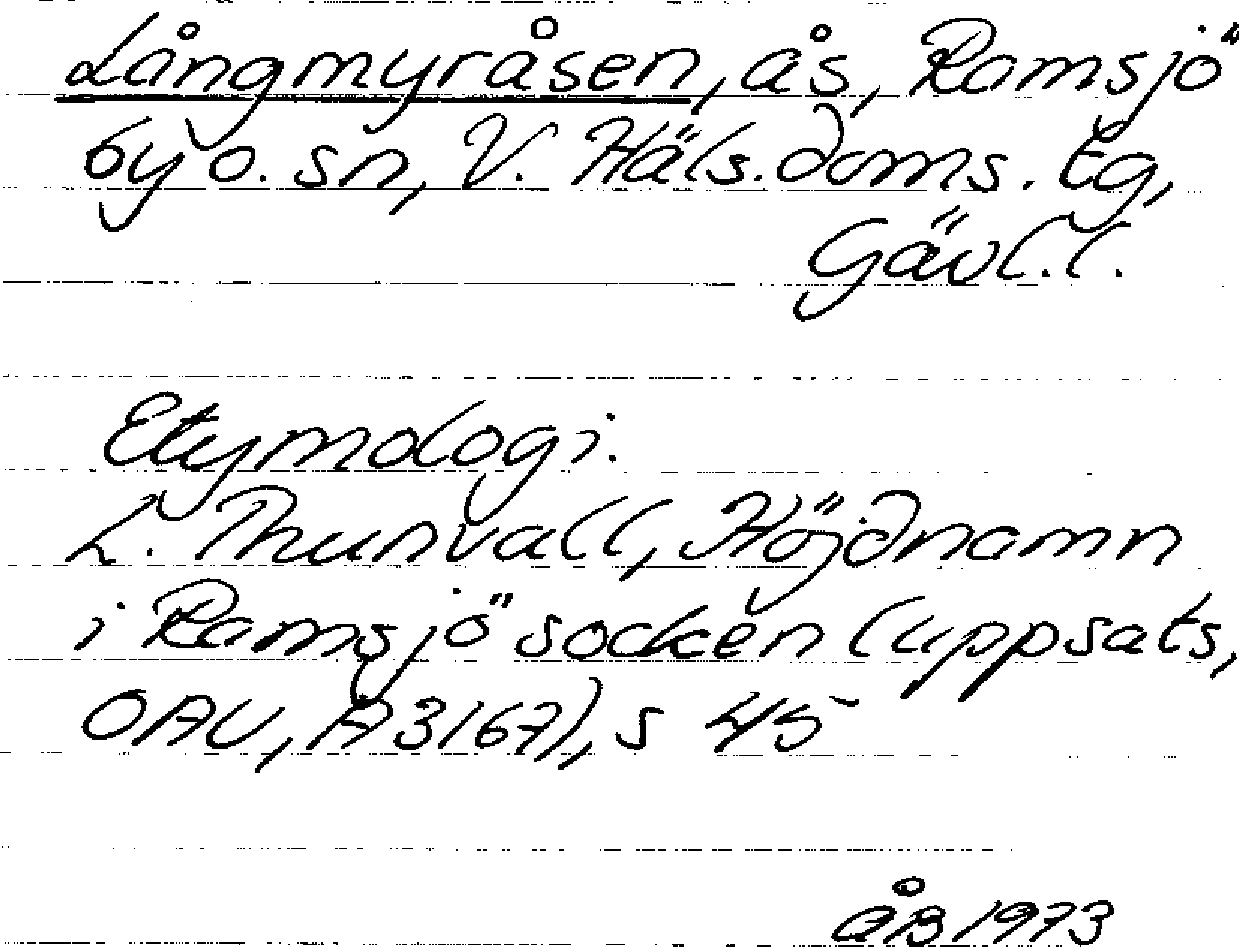 Långmyråsen, ås, Ramsjö
by o. sn, V. Häls. doms. tg,
Gävl. l.
Etymologi.
L. Thunvall, Höjdnamn
i Ramsjö socken (uppsats,
OAU, A3167), s 45
ÅB 1973